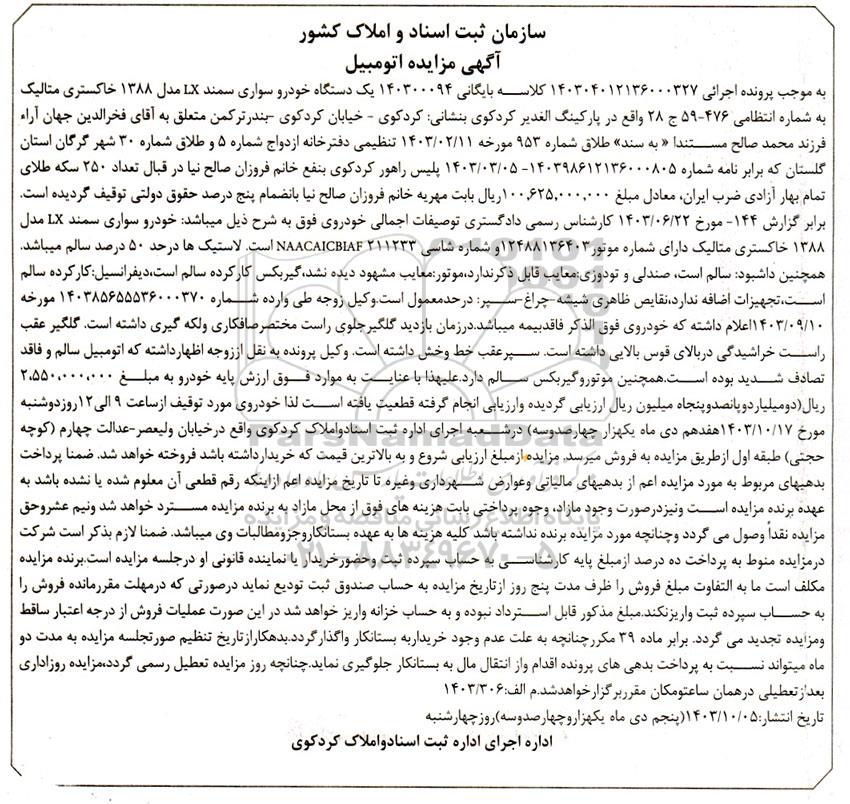 سازمان ثبت اسناد و املاک کشور
آگهی مزایده اتومبیل
به موجب پرونده اجرائی ۱۴۰۳۰۴۰۱۲۱۳۶۰۰۰۳۲۷ کلاسه بایگانی ۱۴۰۳۰۰۰۹۴ یک دستگاه خودرو سواری سمند LX مدل ۱۳۸۸ خاکستری متالیک
به شماره انتظامی ۴۷۶-۵۹ ج ۲۸ واقع در پارکینگ الغدیر کردکوی بنشانی: کردکوی - خیابان کردکوی -بندرترکمن متعلق به آقای فخرالدین جهان آراء
فرزند محمد صالح مستندا « به سند» طلاق شماره ۹۵۳ مورخه ۱۴۰۳/۰۲/۱۱ تنظیمی دفترخانه ازدواج شماره ۵ و طلاق شماره ۳۰ شهر گرگان استان
گلستان که برابر نامه شماره ۱۴۰۳۹۸۶۱۲۱۳۶۰۰۰۸۰۵- ۱۴۰۳/۰۳/۰۵ پلیس راهور کردکوی بنفع خانم فروزان صالح نیا در قبال تعداد ۲۵۰ سکه طلای
تمام بهار آزادی ضرب ایران، معادل مبلغ ۱۰۰,۶۲۵,۰۰۰,۰۰۰ریال بابت مهریه خانم فروزان صالح نیا بانضمام پنج درصد حقوق دولتی توقیف گردیده است.
برابر گزارش ۱۴۴- مورخ ۱۴۰۳/۰۶/۲۲ کارشناس رسمی دادگستری توصیفات اجمالی خودروی فوق به شرح ذیل میباشد: خودرو سواری سمند LX مدل
۱۳۸۸ خاکستری متالیک دارای شماره موتور۱۲۴۸۸۱۳۶۴۰۳و شماره شاسی NAACAICBIAF ۲۱۱۲۳۳ است. لاستیک ها درحد ۵۰ درصد سالم میباشد.
همچنین داشبود: سالم است، صندلی و تودوزی:معایب قابل ذکرندارد،موتور:معایب مشهود دیده نشد،گیربکس کارکرده سالم است،دیفرانسیل:کارکرده سالم
است،تجهیزات اضافه ندارد،نقایص ظاهری شیشه-چراغ-سپر: درحدمعمول است.وکیل زوجه طی وارده شماره ۱۴۰۳۸۵۶۵۵۵۳۶۰۰۰۳۷۰ مورخه
۱۴۰۳/۰۹/۱۰اعلام داشته که خودروی فوق الذکر فاقدبیمه میباشد.درزمان بازدید گلگیرجلوی راست مختصرصافکاری ولکه گیری داشته است. گلگیر عقب
راست خراشیدگی دربالای قوس بالایی داشته است. سپرعقب خط وخش داشته است. وکیل پرونده به نقل اززوجه اظهارداشته که اتومبیل سالم و فاقد
تصادف شدید بوده است.همچنین موتوروگیربکس سالم دارد.علیهذا با عنایت به موارد فوق ارزش پایه خودرو به مبلغ ۲,۵۵۰,۰۰۰,۰۰۰
ریال(دومیلیاردوپانصدوپنجاه میلیون ریال ارزیابی گردیده وارزیابی انجام گرفته قطعیت یافته است لذا خودروی مورد توقیف ازساعت ۹ الی۱۲روزدوشنبه
مورخ ۱۴۰۳/۱۰/۱۷هفدهم دی ماه یکهزار چهارصدوسه) درشعبه اجرای اداره ثبت اسنادواملاک کردکوی واقع درخیابان ولیعصر-عدالت چهارم (کوچه
حجتی) طبقه اول ازطریق مزایده به فروش میرسد. مزایده ازمبلغ ارزیابی شروع و به بالاترین قیمت که خریدارداشته باشد فروخته خواهد شد. ضمنا پرداخت
بدهیهای مربوط به مورد مزایده اعم از بدهیهای مالیاتی وعوارض شهرداری وغیره تا تاریخ مزایده اعم ازاینکه رقم قطعی آن معلوم شده یا نشده باشد به
عهده برنده مزایده است ونیزدرصورت وجود مازاد، وجوه پرداختی بابت هزینه های فوق از محل مازاد به برنده مزایده مسترد خواهد شد ونیم عشروحق
مزایده نقداً وصول می گردد وچنانچه مورد مزایده برنده نداشته باشد کلیه هزینه ها به عهده بستانکاروجزومطالبات وی میباشد. ضمنا لازم بذکر است شرکت
درمزایده منوط به پرداخت ده درصد ازمبلغ پایه کارشناسی به حساب سپرده ثبت وحضورخریدار یا نماینده قانونی او درجلسه مزایده است.برنده مزایده
مکلف است ما به التفاوت مبلغ فروش را ظرف مدت پنج روز ازتاریخ مزایده به حساب صندوق ثبت تودیع نماید درصورتی که درمهلت مقررمانده فروش را
به حساب سپرده ثبت واریزنکند.مبلغ مذکور قابل استرداد نبوده و به حساب خزانه واریز خواهد شد در این صورت عملیات فروش از درجه اعتبار ساقط
ومزایده تجدید می گردد. برابر ماده ۳۹ مکررچنانچه به علت عدم وجود خریداربه بستانکار واگذارگردد.بدهکارازتاریخ تنظیم صورتجلسه مزایده به مدت دو
ماه میتواند نسبت به پرداخت بدهی های پرونده اقدام واز انتقال مال به بستانکار جلوگیری نماید.چنانچه روز مزایده تعطیل رسمی گردد،مزایده روزاداری
بعدازتعطیلی درهمان ساعتومکان مقرربرگزارخواهدشد.م الف:۱۴۰۳/۳۰۶
تاریخ انتشار:۱۴۰۳/۱۰/۰۵(پنجم دی ماه یکهزاروچهارصدوسه)روزچهارشنبه
اداره اجرای اداره ثبت اسنادواملاک کردکوی
ParsNamadData
پایگاه اطلاع رسانی مناقصه و مزایده
۰۲۱-۸۸۳۴۹۶۷۰-۵